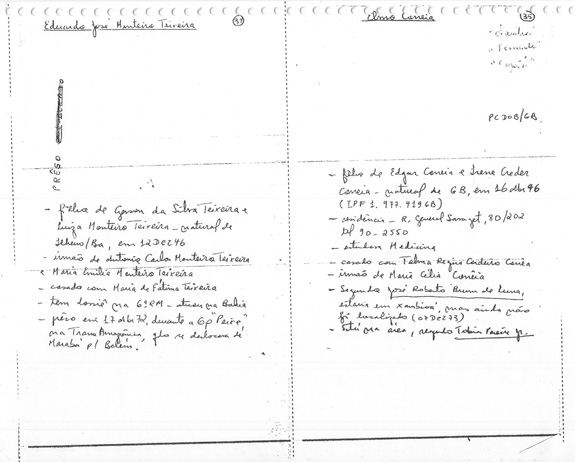 Eduardo José Monteiro Teixeira
PRESO
- filho de Gerson da Silva Teixeira e
Luiza Monteiro Teixeira - natural de
Ilheus/Ba, em 12DEZ46
- irmão de Antonio Carlos Monteiro Teixeira
e Maria Emilia Monteiro Teixeira
- casado com Maria de Fátima Teixeira
- tem na 6ªRM - atuou na Bahia
- preso em 17 72, durante a Op "Peixe"
na TransAmazônica, qdo se deslocava de
Marabá p/ Belém.
Elmo Corrêia
35
PCdoB/GB
- filho de Edgar Corrêia e Irene
Corrêia - natural de GB, em 46
(IPF 1.977.919GB)
- residência - R. General 80/202
- estudou Medicina
- casado com Telma Regina Cordeiro Corrêa
- irmão de Maria Célia Corrêia
- Segundo José Roberto Brum de Luna,
estaria em Xambioá, mas ainda não
foi localizado (07DEZ73)
- Está na área, segundo